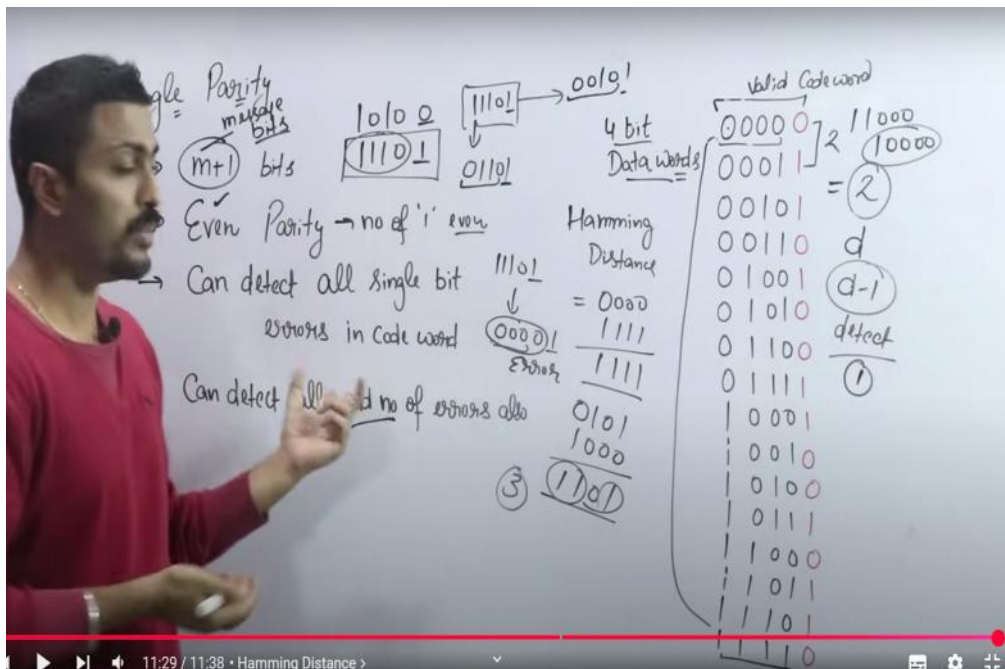 gle Parity
message
bits
m+1 bits
Even Parity → no of '1' even
→ Can detect all single bit
errors in Code word
Can detect all no of errors also
10100
11101
11101 → 00101
↓
01101
11101
↓
00001
Error
4 bit
Data words
Hamming
Distance
= 0000
1111
1111
0101
1000
③ 1101
Valid Codeword
00000
00011
00101
00110
01001
01010
01100
01111
10001
10010
10100
10111
11000
11011
11101
11110
2
11000
10000
= 2
d
d-1
detect
1
11:29 / 11:38 • Hamming Distance >